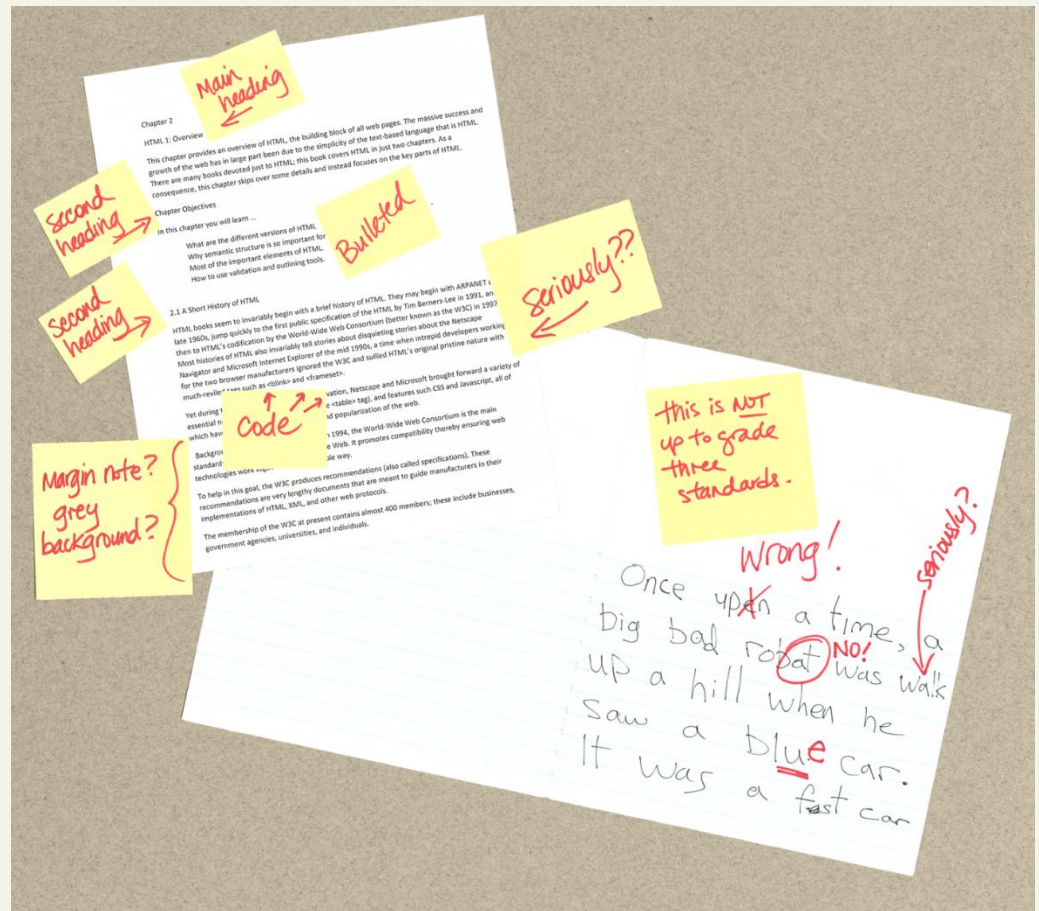 Main
heading
Chapter 2
HTML 1: Overview
This chapter provides an overview of HTML, the building block of all web pages. The massive success and
growth of the web has in large part been due to the simplicity of the text-based language that is HTML.
There are many books devoted just to HTML; this book covers HTML in just two chapters. As a
consequence, this chapter skips over some details and instead focuses on the key parts of HTML.
second
heading
Chapter Objectives
In this chapter you will learn ...
What are the different versions of HTML
Why semantic structure is so important for
Most of the important elements of HTML.
How to use validation and outlining tools.
Bulleted
seriously??
second
heading
2.1 A Short History of HTML
HTML books seem to invariably begin with a brief history of HTML. They may begin with ARPANET
late 1960s, jump quickly to the first public specification of the HTML by Tim Berners-Lee in 1991, an
then to HTML's codification by the World-Wide Web Consortium (better known as the W3C) in 1997
Most histories of HTML also invariably tell stories about disquieting stories about the Netscape
Navigator and Microsoft Internet Explorer of the mid 1990s, a time when intrepid developers working
for the two browser manufacturers ignored the W3C and sullied HTML's original pristine nature with
much-reviled such as <blink> and <frameset>.
Yet during vation, Netscape and Microsoft brought forward a variety of
essential <table> tag), and features such CSS and Javascript, all of
which have d popularization of the web.
code
Backgro n 1994, the World-Wide Web Consortium is the main
standards Web. It promotes compatibility thereby ensuring web
technologies work way.
To help in this goal, the W3C produces recommendations (also called specifications). These
recommendations are very lengthy documents that are meant to guide manufacturers in their
implementations of HTML, XML, and other web protocols.
The membership of the W3C at present contains almost 400 members; these include businesses,
government agencies, universities, and individuals.
Margin note?
grey
background?
this is NOT
up to grade
three
standards.
Wrong!
seriously?
Once upen a time, a
big bad robat NO! was walk
up a hill when he
saw a blue car.
It was a fast car